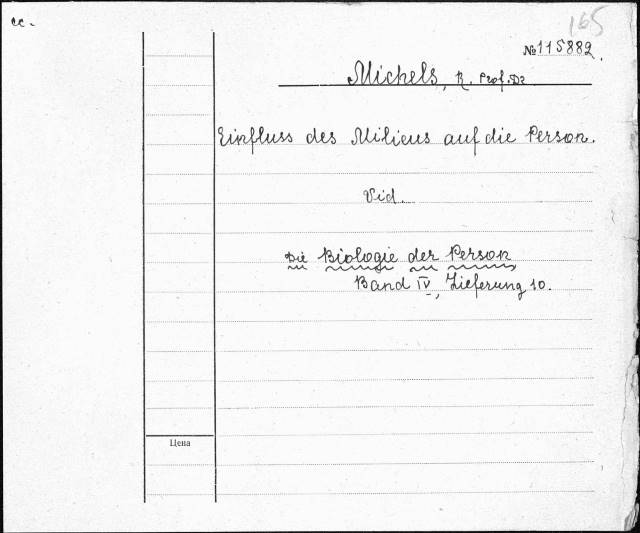 cc.
165
№115882.
Michels, R. Prof. Dr
Einfluss des Milieus auf die Person.
Vid.
Die Biologie der Person
Band IV, Lieferung 10.
Цена